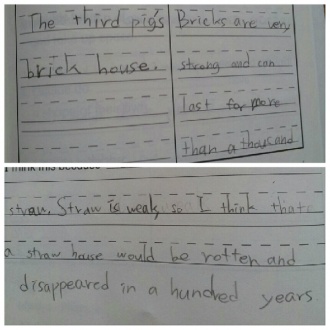 The third pigs
brick house.
Bricks are very
strong and can
last for more
than a thousand
I think this because
straw. Straw is weak, so I think that
a straw house would be rotten and
disappeared in a hundred years.